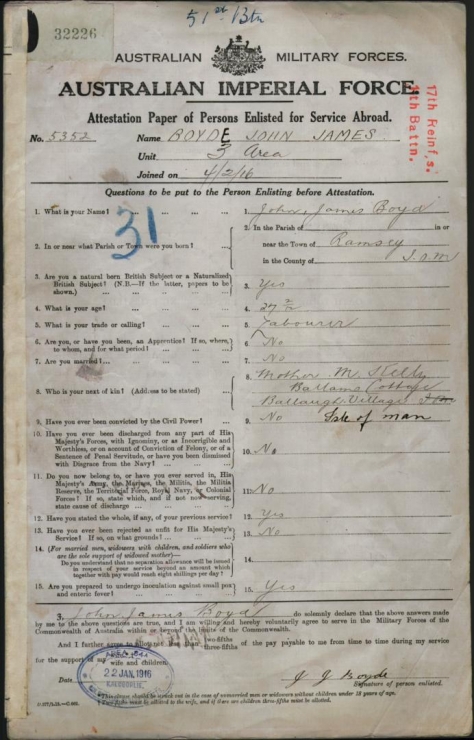 51st Btn
32226
AUSTRALIAN MILITARY FORCES.
AUSTRALIAN IMPERIAL FORCE.
17th Reinf,s.
11th Battn.
Attestation Paper of Persons Enlisted for Service Abroad.
No. 5352 Name BOYDE JOHN JAMES
Unit 3 Area
Joined on 4/2/16
Questions to be put to the Person Enlisting before Attestation.
31
1. What is your Name? 1. John James Boyd
2. In or near what Parish or Town were you born? 2. In the Parish of in or
near the Town of Ramsey
in the County of I.O.M
3. Are you a natural born British Subject or a Naturalized
British Subject? (N.B.—If the latter, papers to be
shown.) 3. Yes
4. What is your age? 4. 27
5. What is your trade or calling? 5. Labourer
6. Are you, or have you been, an Apprentice? If so, where,
to whom, and for what period? 6. No
7. Are you married? 7. No
8. Who is your next of kin? (Address to be stated) 8. Mother M. Kelly
Ballams Cottage
Ballaugh Village
Isle of man
9. Have you ever been convicted by the Civil Power? 9. No
10. Have you ever been discharged from any part of His
Majesty's Forces, with Ignominy, or as Incorrigible and
Worthless, or on account of Conviction of Felony, or of a
Sentence of Penal Servitude, or have you been dismissed
with Disgrace from the Navy? 10. No
11. Do you now belong to, or have you ever served in, His
Majesty's Army, the Marines, the Militia, the Militia
Reserve, the Territorial Force, Royal Navy, or Colonial
Forces? If so, state which, and if not now serving,
state cause of discharge 11. No
12. Have you stated the whole, if any, of your previous service? 12. Yes
13. Have you ever been rejected as unfit for His Majesty's
Service? If so, on what grounds? 13. No
14. (For married men, widowers with children, and soldiers who
are the sole support of widowed mother)—
Do you understand that no separation allowance will be issued
in respect of your service beyond an amount which
together with pay would reach eight shillings per day? 14.
15. Are you prepared to undergo inoculation against small pox
and enteric fever? 15. Yes
John James Boyd do solemnly declare that the above answers made
by me to the above questions are true, and I am willing and hereby voluntarily agree to serve in the Military Forces of the
Commonwealth of Australia within or beyond the limits of the Commonwealth.
And I further agree to allot not less than two-fifths
three-fifths of the pay payable to me from time to time during my service
for the support of my wife and children.
22 JAN. 1916
KALGOORLIE.
Date J J Boyde
Signature of person enlisted.
*This clause should be struck out in the case of unmarried men or widowers without children under 18 years of age.
† Two fifths must be allotted to the wife, and if there are children three-fifths must be allotted.